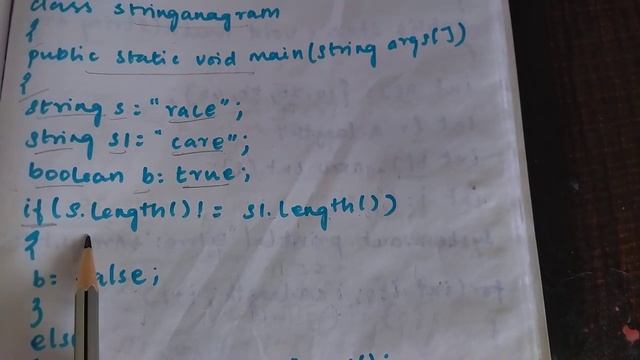 class stringanagram
{
public static void main(string args[])
{
string s = "race";
string s1 = "care";
boolean b = true;
if(s.length()!= s1.length())
{
b =
}